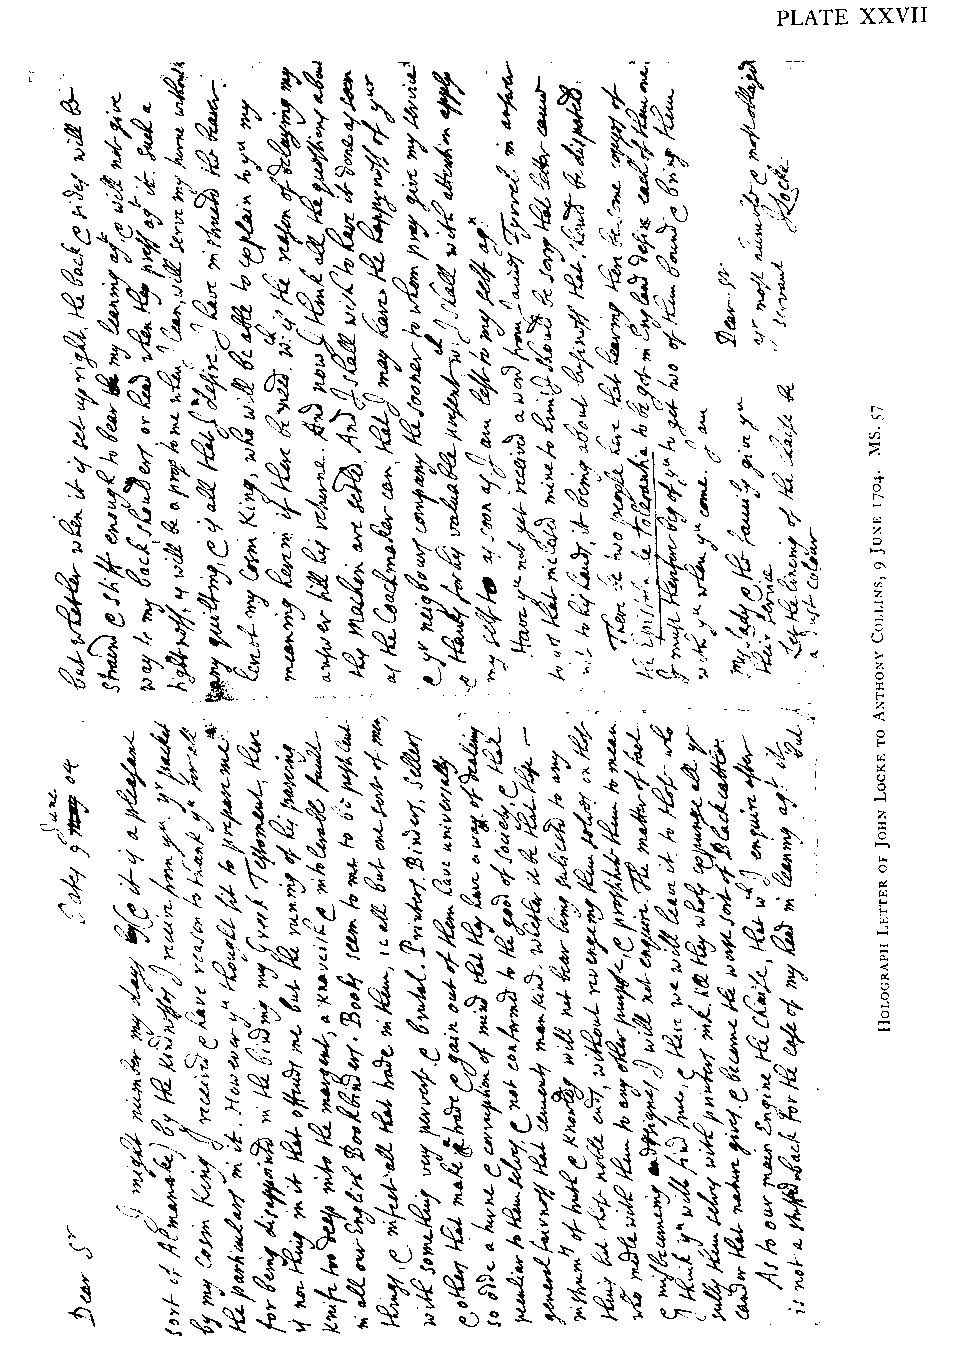 PLATE XXVII
Oates 9 June 04
Dear Sr
I might number my days (& it is a pleasant
sort of Almanake) by the kindnesses I receive from you. yr packet
by my Cosin King I received & have reason to thank yu for all
the particulars in it. However yu thought fit to prepare me
for being disappointed in the binding my Greek Testament, there
is nothing in it that offends me but the running of his paring
knife too deep into the margent, a knavish & intolerable fault
in all our English Bookbinders. Books seem to me to be pestilent
things, & infect all that trade in them, i e all but one sort of men,
with something very perverse & brutal. Printers, Binders, Sellers
& others that make a trade & gain out of them have universally
so odde a turne & corruption of mind that they have a way of dealing
peculiar to themselves, & not conformed to the good of society, &  that
general fairness that cements man kind. Whether it be that these
instrumts of truth & knowledg will not bear being subjected to any
thing but those noble ends, without revenging them selves on those
who medle with them to any other purpose, & prostitute them to mean
& misbecoming designes I will not enquire. The matter of fact
I think yu will find true, & there we will leave it to those who
sully them selves with printers ink till they wholy expunge all ye
candor that nature gives, & become the worse sort of Black cattle.
As to our main Engine the Chaise, that wch I enquire after
is not a stuffed back for the case of my head in leaning agt it
but
but whether when it is set upright the back & sides will be
strawd & stiff enough to bear my leaning agt & will not give
way to my back shoulders or head when they press agt it. Such a
tight stiff, yt will be a prop to me when I lean, will serve my turne without
any quilting, & is all that I desire. I have in threed the bearer
hereof my Cosin King, who will be able to explain to yu my
meaning herein if there be need. wch is the reason of delaying my
answer till his returne. And now I think all the questions about
this machin are setled. And I shall wish to have it done as soon
as the Coachmaker can, that I may have the happyness of your
& yr neigbours company the sooner to whom pray give my service
& thanks for his valuable present wch I shall with attention apply
my self to as soon as I am left to my self agn
Have yu not yet received a word from James Tyrrel in answer
to  that  mine to him. I should be sorry that letter came
not to his hands, it being about business that should be dispatched.
There be two people here that hearing there be some copies of
the Epistola de tolerantia to be got in England desire each of them one.
I must therefore beg of yu to get two of them bound & bring them
with yu when yu come. I am
Dear Sr
yr most humble & most obleiged
servant
J Locke
My lady & the family give yu
their service
Let the lineing of the chaise be
a dust colour
HOLOGRAPH LETTER OF JOHN LOCKE TO ANTHONY COLLINS, 9 JUNE 1704. MS. 57